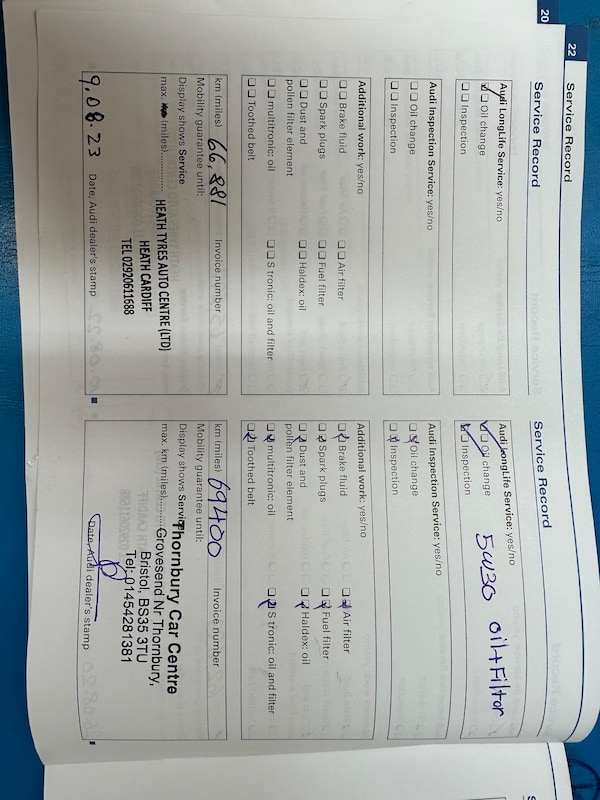 20
22
Service Record
Service Record
Audi LongLife Service: yes/no
Oil change
Inspection
Audi Inspection Service: yes/no
Oil change
Inspection
Additional work: yes/no
Brake fluid
Air filter
Spark plugs
Fuel filter
Dust and
pollen filter element
Haldex: oil
multitronic: oil
S tronic: oil and filter
Toothed belt
km (miles) 66,881 Invoice number
Mobility guarantee until:
Display shows Service
max. (miles)
HEATH TYRES AUTO CENTRE (LTD)
HEATH CARDIFF
TEL 02920611688
9.08.23
Date, Audi dealer's stamp
Service Record
Audi LongLife Service: yes/no
Oil change
5W30 oil+Filter
Inspection
Audi Inspection Service: yes/no
Oil change
Inspection
Additional work: yes/no
Brake fluid
Air filter
Spark plugs
Fuel filter
Dust and
pollen filter element
Haldex: oil
multitronic: oil
S tronic: oil and filter
Toothed belt
km (miles) 69400 Invoice number
Mobility guarantee until:
Display shows Service
max. km (miles)
Thornbury Car Centre
Grovesend Nr Thornbury,
Bristol, BS35 3TU
Tel: 01454281381
Date, Audi dealer's stamp